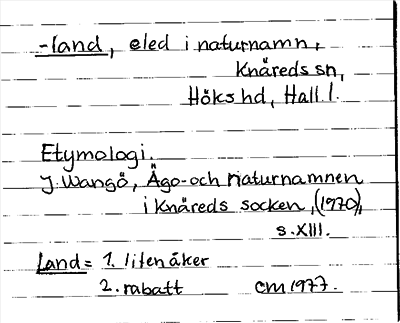 -land, eled i naturnamn,
Knäreds sn,
Höks hd, Hall l.
Etymologi.
J. Wangö, Ägo- och naturnamnen
i Knäreds socken, (1970),
s. XIII.
Land = 1. liten åker
2. rabatt CM 1977.